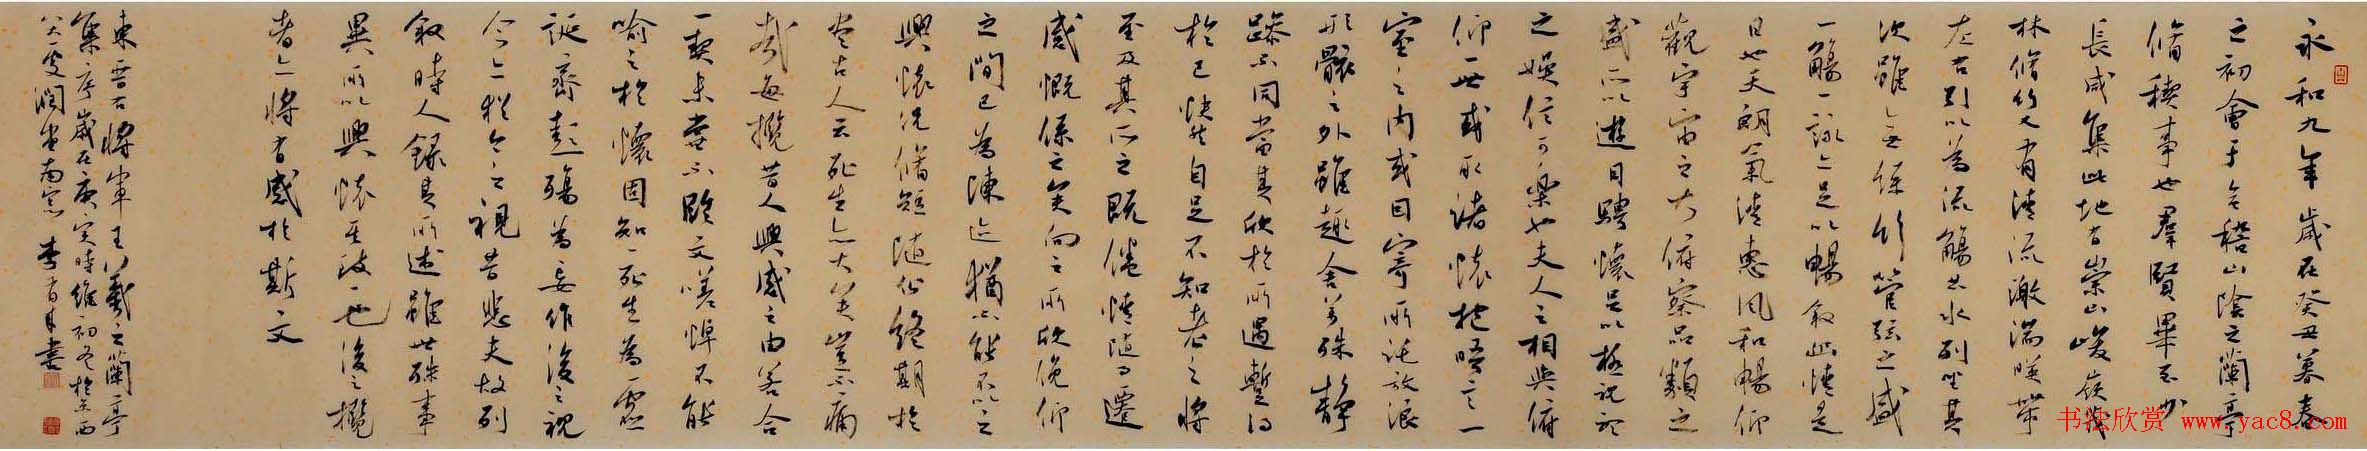 永和九年歲在癸丑暮春
之初會于會稽山陰之蘭亭
脩稧事也羣賢畢至少
長咸集此地有崇山峻嶺茂
林脩竹又有清流激湍暎帶
左右引以為流觴曲水列坐其
次雖無絲竹管弦之盛
一觴一詠亦足以暢敘幽情是
日也天朗氣清惠風和暢仰
觀宇宙之大俯察品類之
盛所以遊目騁懷足以極視聽
之娛信可樂也夫人之相與俯
仰一世或取諸懷抱悟言一
室之內或因寄所託放浪
形骸之外雖趣舍萬殊靜
躁不同當其欣於所遇暫得
於己快然自足不知老之將
至及其所之既倦情隨事遷
感慨係之矣向之所欣俛仰
之間已為陳迹猶不能不以之
興懷況脩短隨化終期於
盡古人云死生亦大矣豈不痛
哉每攬昔人興感之由若合
一契未嘗不臨文嗟悼不能
喻之於懷固知一死生為虛
誕齊彭殤為妄作後之視
今亦猶今之視昔悲夫故列
敘時人錄其所述雖世殊事
異所以興懷其致一也後之攬
者亦將有感於斯文
東晉右將軍王羲之蘭亭
集序歲在庚寅時維初冬於京西
八大處潤堂南窗 李有來書
书法欣赏 www.yac8.com